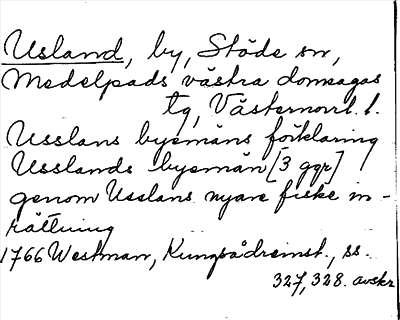 Usland, by, Stöde sn,
Medelpads västra domsagas
tg, Västernorrl. l.
Usslans bysmäns förklaring
Usslands bysmän [3 ggr]
genom Usslans nyare fiske in-
rättning
1766 Westman, Kungsådreinst., ss.
327, 328. avskr